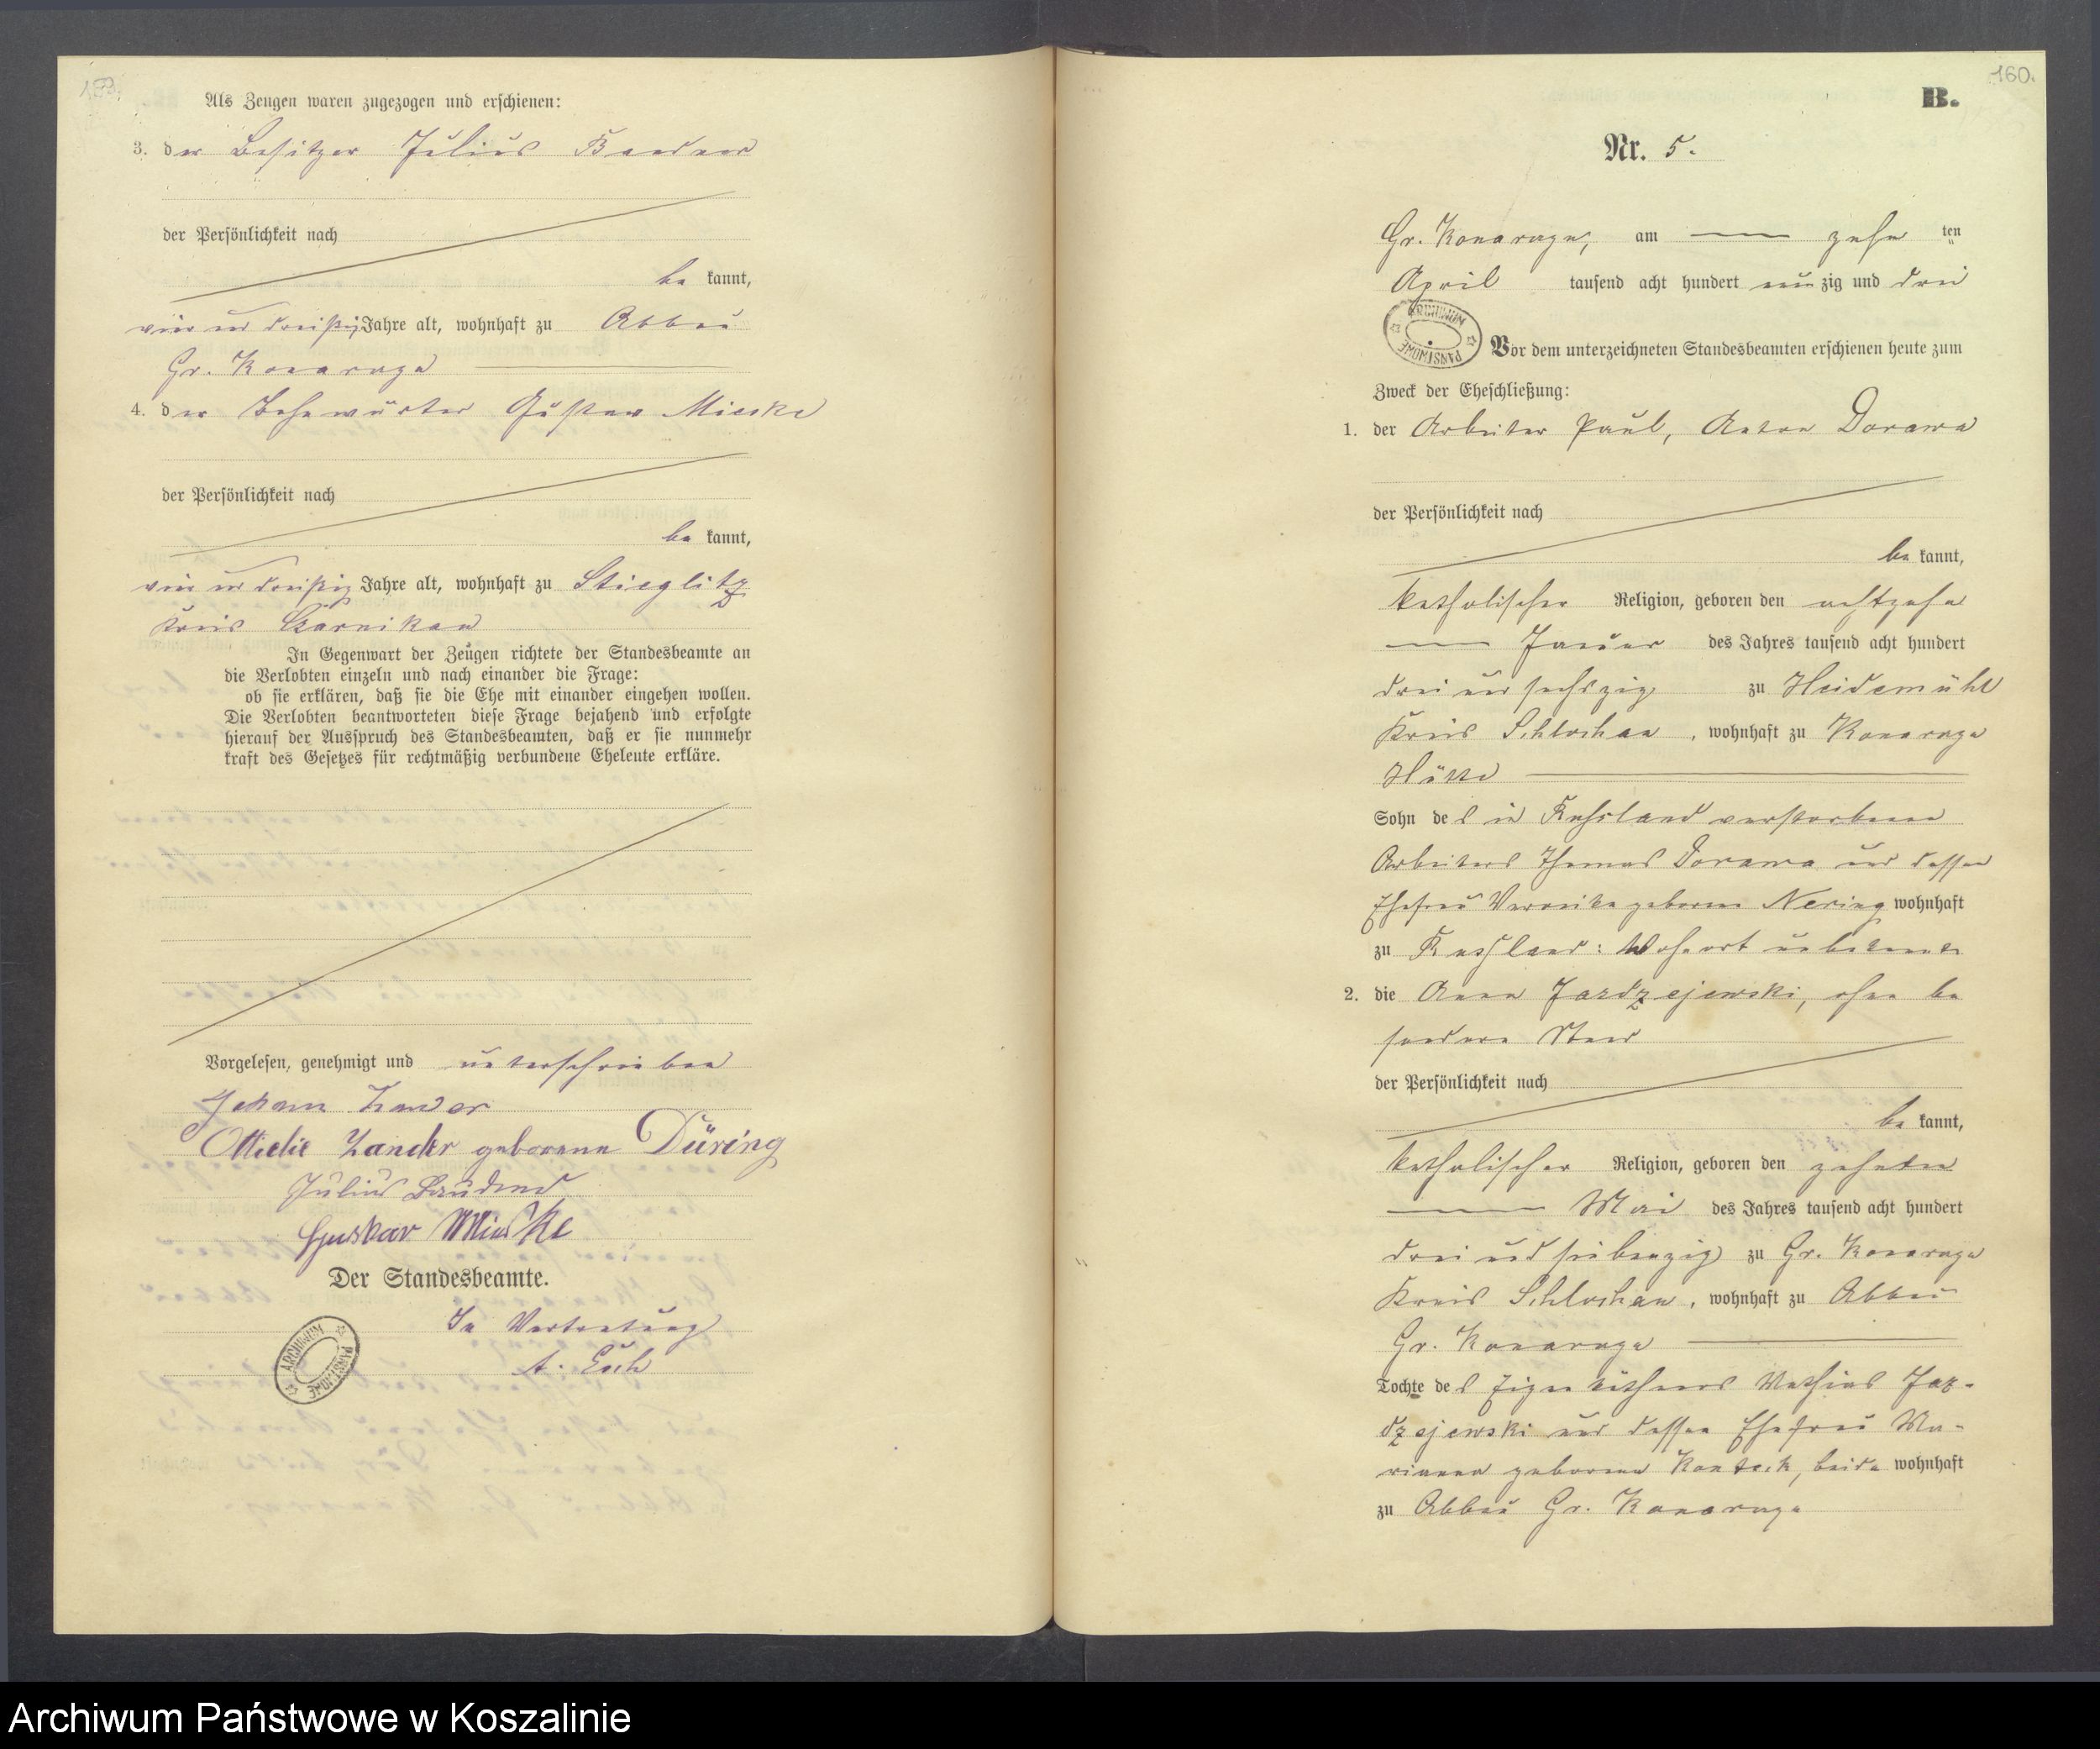 159.
Als Zeugen waren zugezogen und erschienen:
3. der Besitzer Julius
der Persönlichkeit nach
be kannt,
vier und dreißig Jahre alt, wohnhaft zu Abbau
Gr. Konarczyn
4. der Bahnwärter Gustav Mieske
der Persönlichkeit nach
be kannt,
vier und dreißig Jahre alt, wohnhaft zu Stieglitz
Kreis Czarnikau
In Gegenwart der Zeugen richtete der Standesbeamte an
die Verlobten einzeln und nach einander die Frage:
ob sie erklären, daß sie die Ehe mit einander eingehen wollen.
Die Verlobten beantworteten diese Frage bejahend und erfolgte
hierauf der Ausspruch des Standesbeamten, daß er sie nunmehr
kraft des Gesetzes für rechtmäßig verbundene Eheleute erkläre.
Vorgelesen, genehmigt und unterschrieben
Johann Zander
Ottielie Zander geborene Düring
Julius
Gustav Mieske
Der Standesbeamte.
In Vertretung
A.
ARCHIWUM PAŃSTWOWE
160.
B.
Nr. 5.
Gr. Konarzyn, am zehn ten
April tausend acht hundert neunzig und drei
ARCHIWUM PAŃSTWOWE
Vor dem unterzeichneten Standesbeamten erschienen heute zum
Zweck der Eheschließung:
1. der Arbeiter Paul, Anton Dorawa
der Persönlichkeit nach
be kannt,
katholischer Religion, geboren den achtzehn
Januar des Jahres tausend acht hundert
drei und sechszig zu Heidemühl
Kreis Schlochau, wohnhaft zu Konarzyn
Hütte
Sohn des in Russland verstorbenen
Arbeiters Thomas Dorawa und dessen
Ehefrau Veronika geborene Nering wohnhaft
zu Russland: Wohnort unbekannt
2. die Anna Jazdzejewski, ohne be
sondern Stand
der Persönlichkeit nach
be kannt,
katholischer Religion, geboren den zehnten
Mai des Jahres tausend acht hundert
drei und siebenzig zu Gr. Konarzyn
Kreis Schlochau, wohnhaft zu Abbau
Gr. Konarzyn
Tochte des Eigenkäthners Mathias Jaz-
dzejewski und dessen Ehefrau Ma-
rianna geborene beide wohnhaft
zu Abbau Gr. Konarzyn
Archiwum Państwowe w Koszalinie